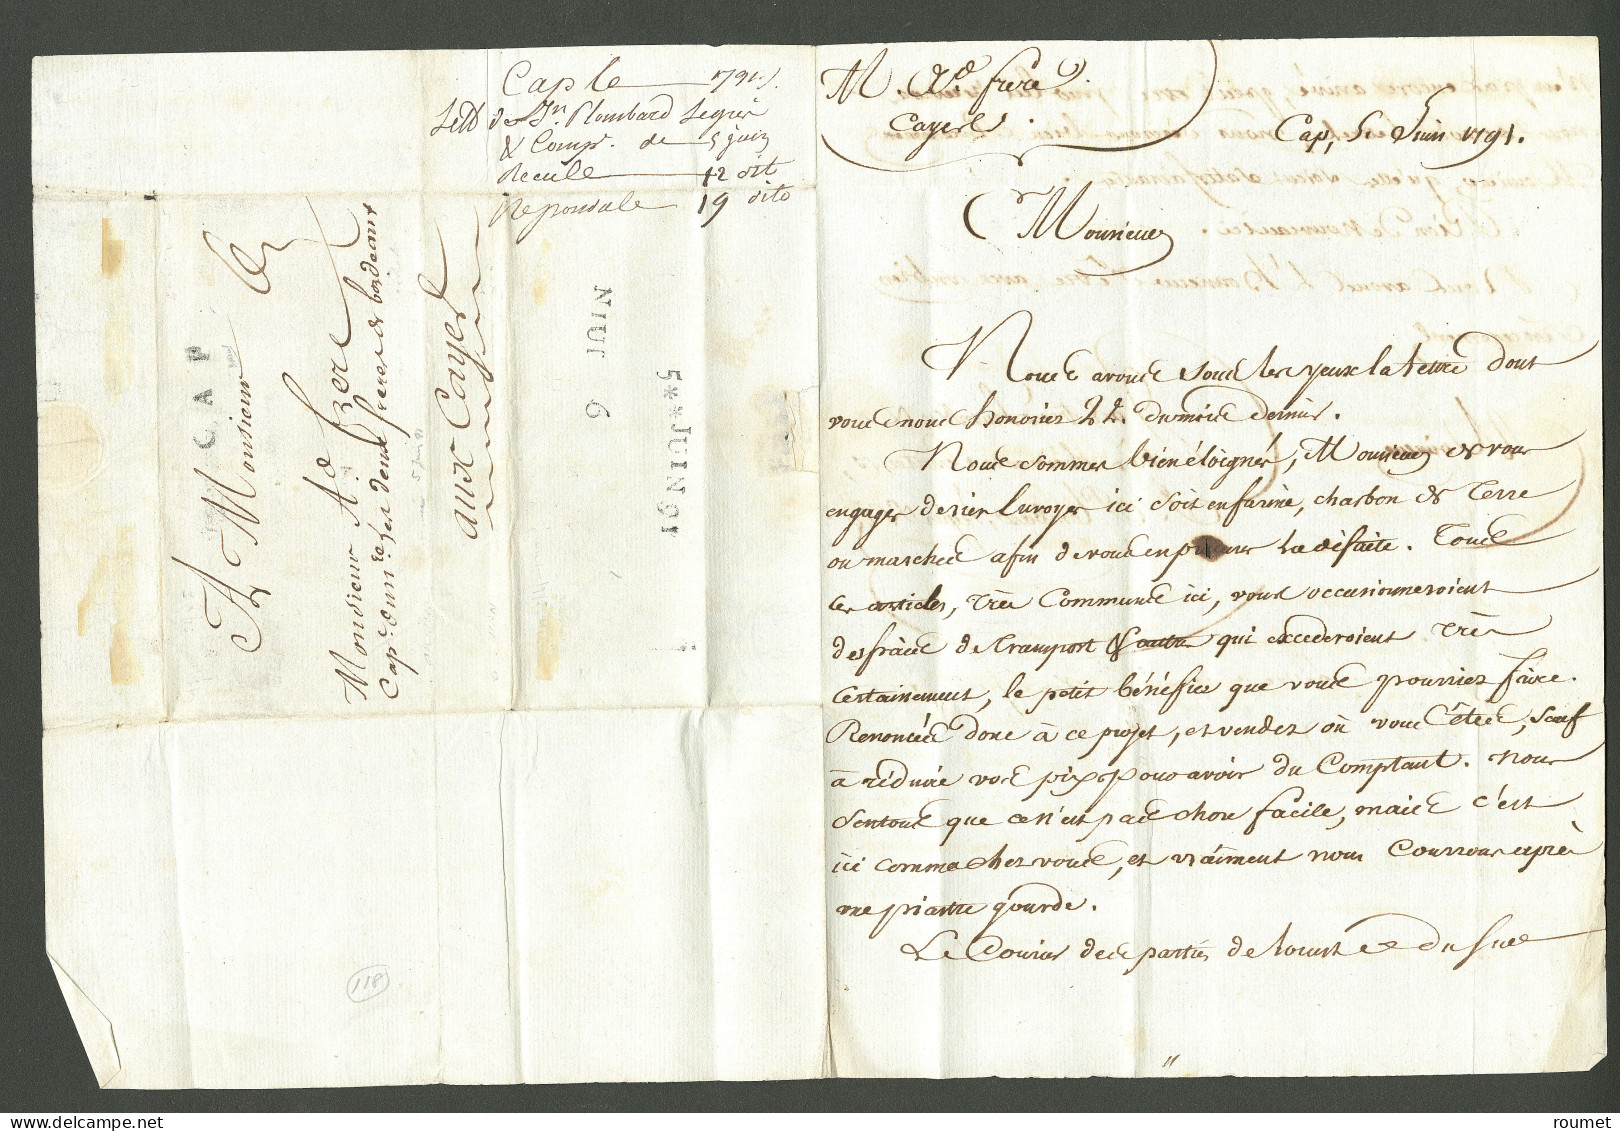 Cap le 1791
de Jn Plombard Legris
& Comp. de 5 juin
Recule 12 dit
Reponsale 19 dito
CAP
A Monsieur
Monsieur Ad. frere
Cap. d'un des deux freres de bordeaux
aux Cayes
9 JUIN
5**JUIN91
118
M. Ad. frere
Cayes
Cap, 5. Juin 1791.
Monsieur
Nous avons sous les yeux la lettre dont
vous nous honoriez 22. du mois dernier.
Nous sommes bien éloignés, Monsieur de vous
engager de rien Envoyer ici soit en farine, charbon de Terre
ou marchee afin de vous en procurer la défaite. Tous
ces articles, très Communs ici, vous occasionneroient
des fraix de transport & autre qui excederoient très
certainement, le petit bénéfice que vous pourriez faire.
Renoncés donc à ce projet, et vendez où vous êtes, sauf
à réduire vos pix pour avoir du Comptant. Nous
sentons que ce n'est pas chose facile, mais c'est
ici comme chez vous, et vraiment nous Courrons après
une piastre gourde.
Le Courier des parties de l'ouest & du Sud